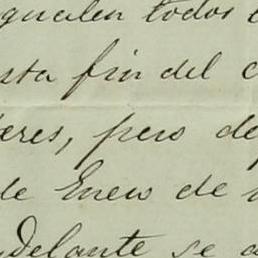 gualen todos
sta fin del
eres, pero de
de Enero de
delante se a